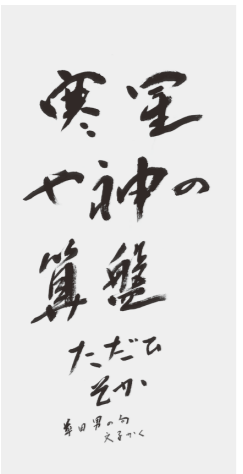 寒星
や神の
算盤
ただひ
そか
草田男の句
文子かく